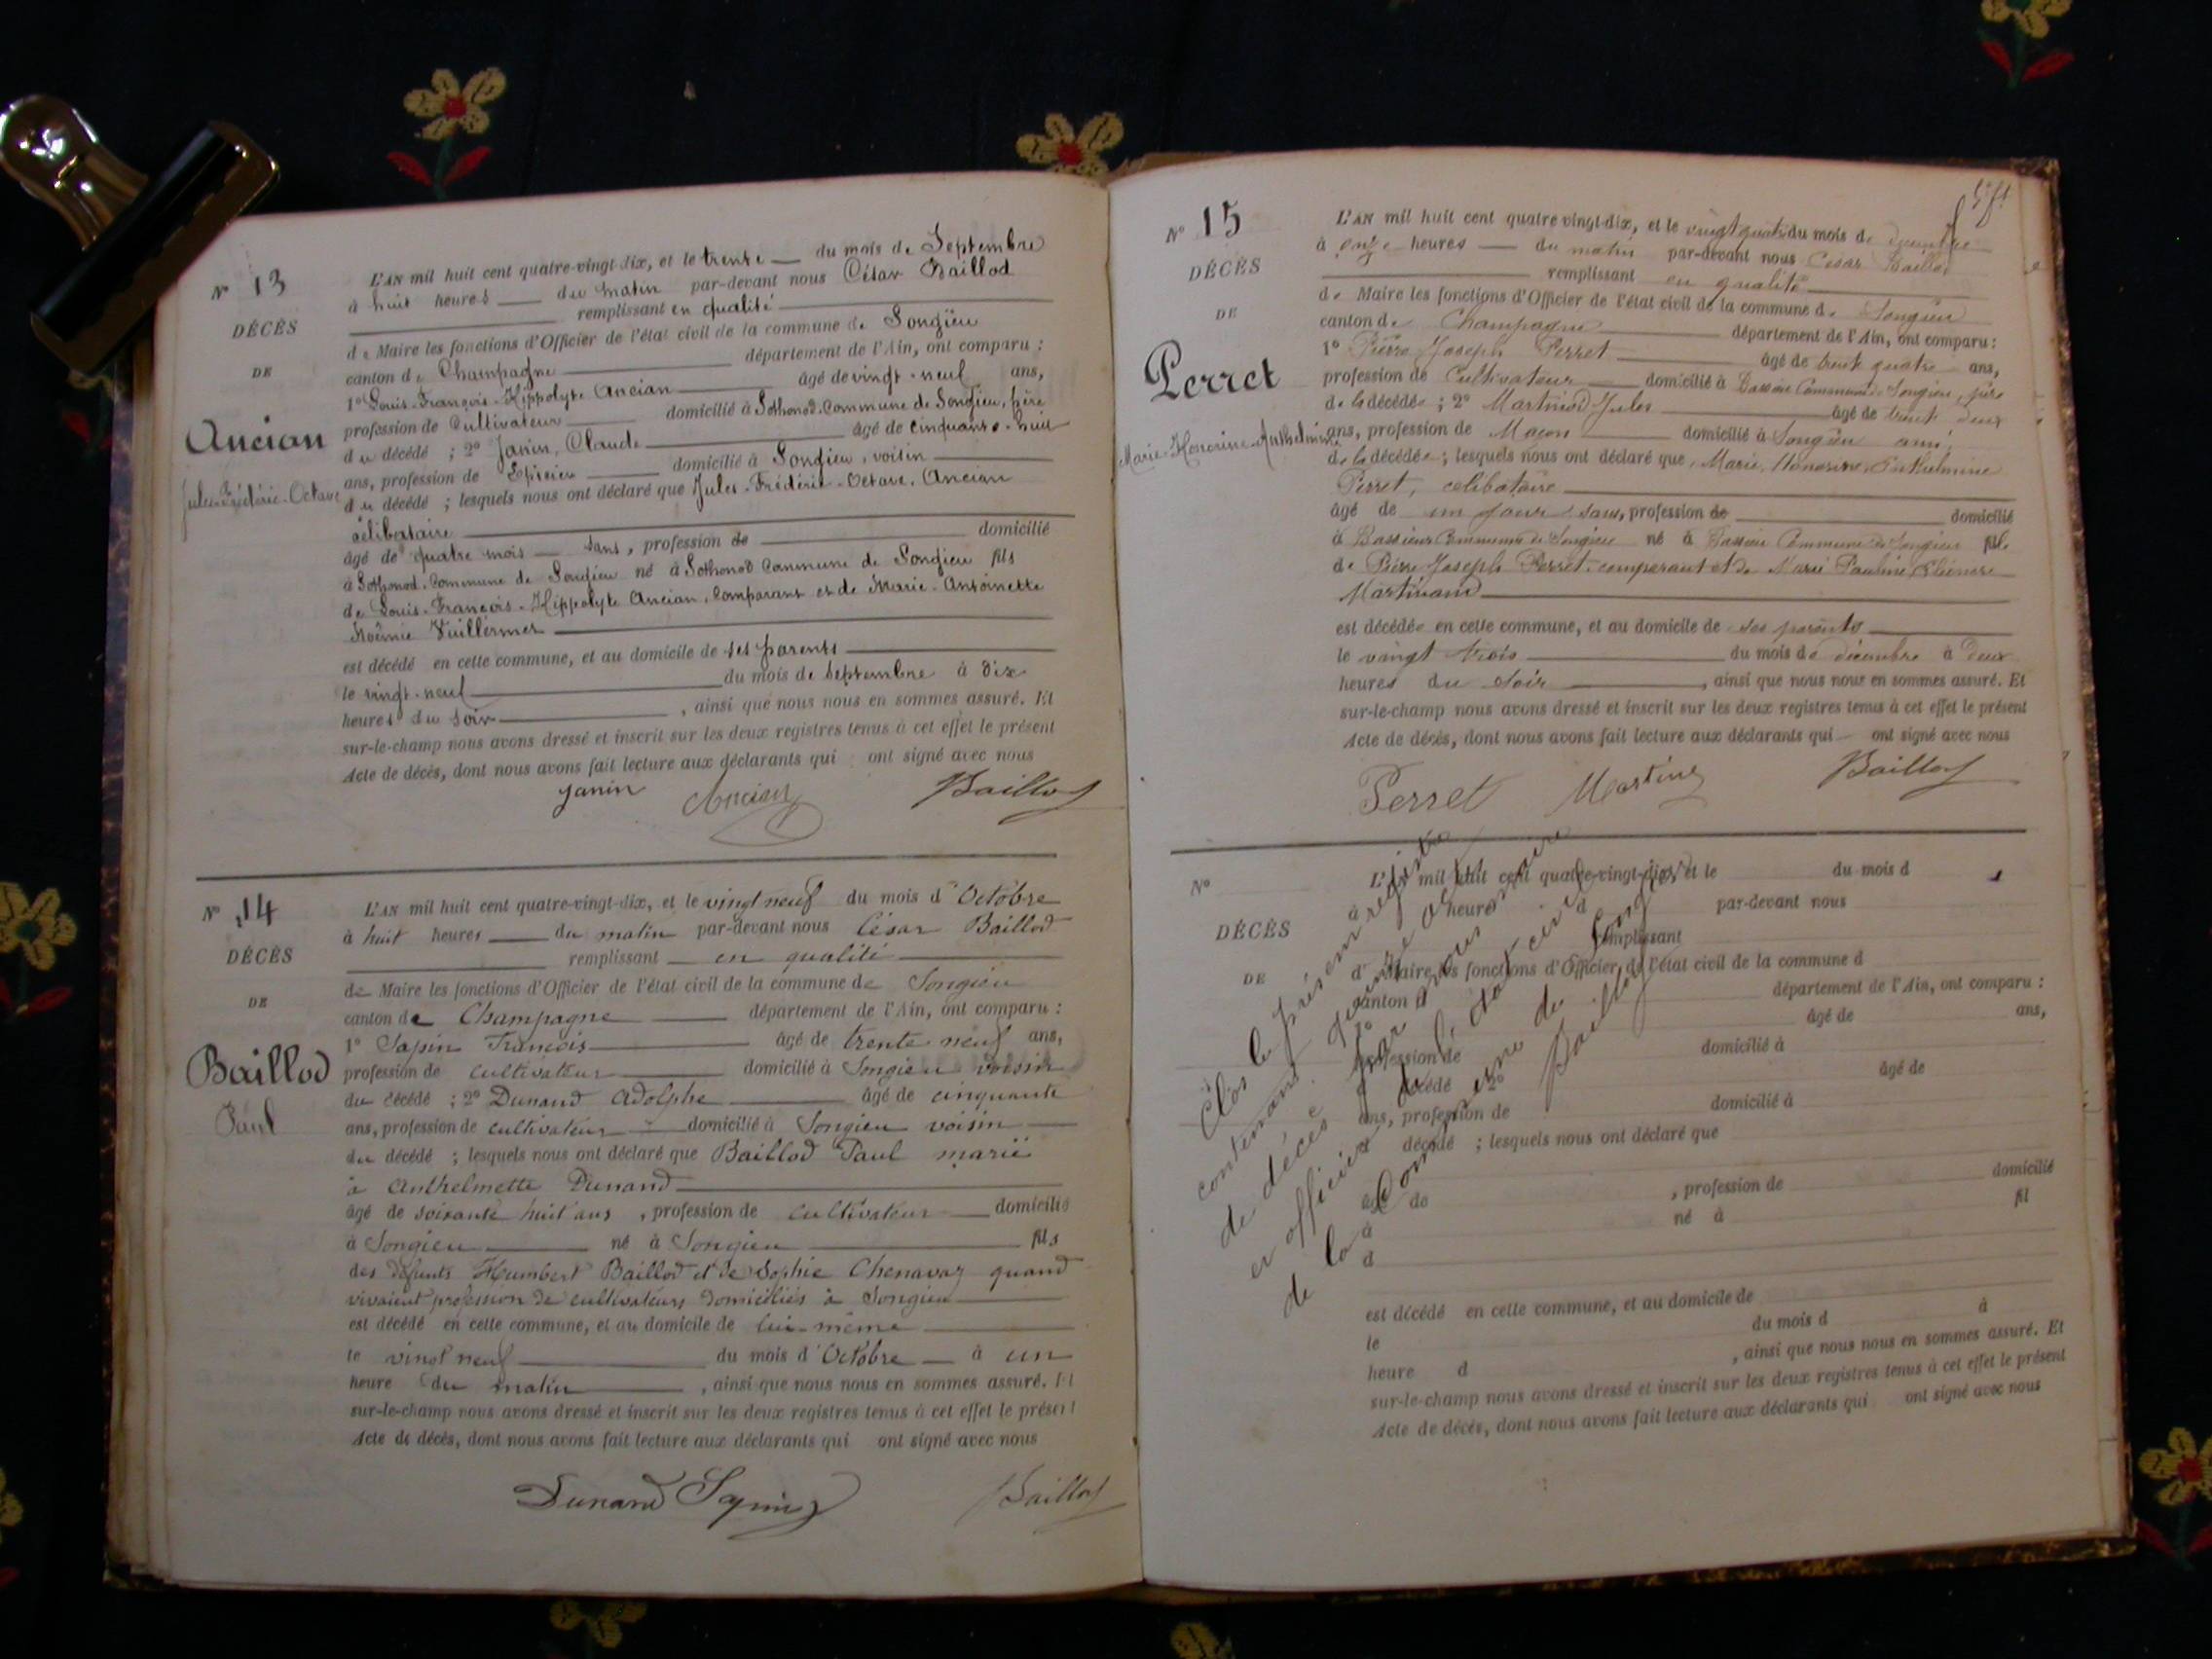 N° 13
DÉCÈS
DE
Ancian
Jules-Frédéric-Octave
L'AN mil huit cent quatre-vingt-dix, et le trente du mois de Septembre
à huit heures du matin par-devant nous César Baillod
remplissant en qualité
de Maire les fonctions d'Officier de l'état civil de la commune de Songieu
canton de Champagne département de l'Ain, ont comparu :
1° Louis-François-Hippolyte Ancian âgé de vingt-neuf ans,
profession de Cultivateur domicilié à Sothonod, Commune de Songieu, père
du décédé ; 2° Janin, Claude âgé de cinquante-huit
ans, profession de Epicier domicilié à Songieu, voisin
du décédé ; lesquels nous ont déclaré que Jules-Frédéric-Octave, Ancian
célibataire
âgé de quatre mois sans, profession de domicilié
à Sothonod, Commune de Songieu né à Sothonod Commune de Songieu fils
de Louis-François-Hippolyte Ancian, Comparant et de Marie-Antoinette
Noémie Vuillermet
est décédé en cette commune, et au domicile de ses parents
le vingt-neuf du mois de Septembre à dix
heures du soir , ainsi que nous nous en sommes assuré. Et
sur-le-champ nous avons dressé et inscrit sur les deux registres tenus à cet effet le présent
Acte de décès, dont nous avons fait lecture aux déclarants qui ont signé avec nous
Janin Ancian Baillod
N° 14
DÉCÈS
DE
Baillod
Paul
L'AN mil huit cent quatre-vingt-dix, et le vingt neuf du mois d'Octobre
à huit heures du matin par-devant nous César Baillod
remplissant en qualité
de Maire les fonctions d'Officier de l'état civil de la commune de Songieu
canton de Champagne département de l'Ain, ont comparu :
1° Sapin François âgé de trente neuf ans,
profession de cultivateur domicilié à Songieu voisin
du décédé ; 2° Dunand Adolphe âgé de cinquante
ans, profession de cultivateur domicilié à Songieu voisin
du décédé ; lesquels nous ont déclaré que Baillod Paul marié
à Anthelmette Dunand
âgé de soixante huit ans , profession de cultivateur domicilié
à Songieu né à Songieu fils
des défunts Humbert Baillod et de Sophie Chenavaz quand
vivaient profession de cultivateurs domiciliés à Songieu
est décédé en cette commune, et au domicile de lui-même
le vingt neuf du mois d'Octobre à un
heure du matin , ainsi que nous nous en sommes assuré. Et
sur-le-champ nous avons dressé et inscrit sur les deux registres tenus à cet effet le présent
Acte de décès, dont nous avons fait lecture aux déclarants qui ont signé avec nous
Dunand Sapin Baillod
N° 15
DÉCÈS
DE
Perret
Marie-Honorine-Anthelmine
L'AN mil huit cent quatre vingt-dix, et le vingt quatre du mois de décembre
à onze heures du matin par-devant nous César Baillod
remplissant en qualité
de Maire les fonctions d'Officier de l'état civil de la commune de Songieu
canton de Champagne département de l'Ain, ont comparu :
1° Pierre Joseph Perret âgé de trente quatre ans,
profession de Cultivateur domicilié à Bassieu Commune de Songieu, père
de la décédée ; 2° Martinod Jules âgé de trente deux
ans, profession de Maçon domicilié à Songieu ami
de la décédée ; lesquels nous ont déclaré que Marie, Honorine, Anthelmine
Perret, célibataire
âgé de un jour sans, profession de domicilié
à Bassieu Commune de Songieu né à Bassieu Commune de Songieu fille
de Pierre Joseph Perret, comparant et de Marie Pauline Eléonore
Martinand
est décédée en cette commune, et au domicile de ses parents
le vingt trois du mois de décembre à deux
heures du soir , ainsi que nous nous en sommes assuré. Et
sur-le-champ nous avons dressé et inscrit sur les deux registres tenus à cet effet le présent
Acte de décès, dont nous avons fait lecture aux déclarants qui ont signé avec nous
Perret Martinod Baillod
N°
DÉCÈS
DE
L'AN mil huit cent quatre-vingt-dix, et le du mois d
à heure d par-devant nous
remplissant
d Maire les fonctions d'Officier de l'état civil de la commune d
canton d département de l'Ain, ont comparu :
1° âgé de ans,
profession de domicilié à
d décédé 2° âgé de
ans, profession de domicilié à
d décédé ; lesquels nous ont déclaré que
âgé de , profession de domicilié
à né à fil
d
est décédé en cette commune, et au domicile de
le du mois d à
heure d , ainsi que nous nous en sommes assuré. Et
sur-le-champ nous avons dressé et inscrit sur les deux registres tenus à cet effet le présent
Acte de décès, dont nous avons fait lecture aux déclarants qui ont signé avec nous
Clos le présent registre
contenant quinze actes
de décès par nous maire
et officier de l'état civil
de la Commune de Songieu
Baillod